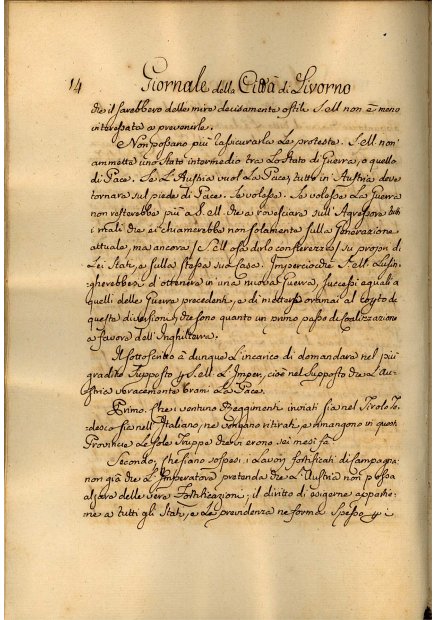 14 Giornale della Città di Livorno
die il sarebbero delle mire decisamente ostili S. ell. non è meno
interessata a prevenirle.
Non possano più l'assicurarla le proteste. S. ell. non
ammette uno Stato intermedio tra lo Stato di Guerra, o quello
di Pace. Se l'Austria vuol la Pace, tutto in Austria deve
tornare sul piede di Pace. Se volesse la Guerra
non resterebbe più a S. ell. die a rovesciare sull'Agressore tutti
i mali die ei chiamerebbe non solamente sulla Generazione
attuale, ma ancora
Lei Stati, e sulla stessa sua Casa. Imperciocdie S. ell. lusin:
gherebbesi d'ottenere in una nuova Guerra, successi eguali a
quelli delle Guerre precedenti, e di mettersi ormai al
questa divisioni, die sono quanto un primo passo di Coalizzazione
a favore dell'Inghilterra.
Il sottoscritto à dunque l'incarico di domandare nel più
gradito supposto S. ell. L'Imper, cioè nel supposto die l'Au:
stria veracemente brami la Pace.
Primo. Che i ventuno Reggimenti inviati sia nel Tirolo Te:
desco sia nell'Italiano, ne vengano ritirati, e rimangono in queste
Provincie le sole Truppe diervi erono sei mesi fà.
Secondo, che siano sospesi i Lavori fortificati di campagna;
non già die l'Imperatore pretenda die l'Austria non possa
alzare delle vere Fortificazioni; il diritto di esigerne appartie:
ne a tutti gli Stati, e la previdenza ne forma spesso